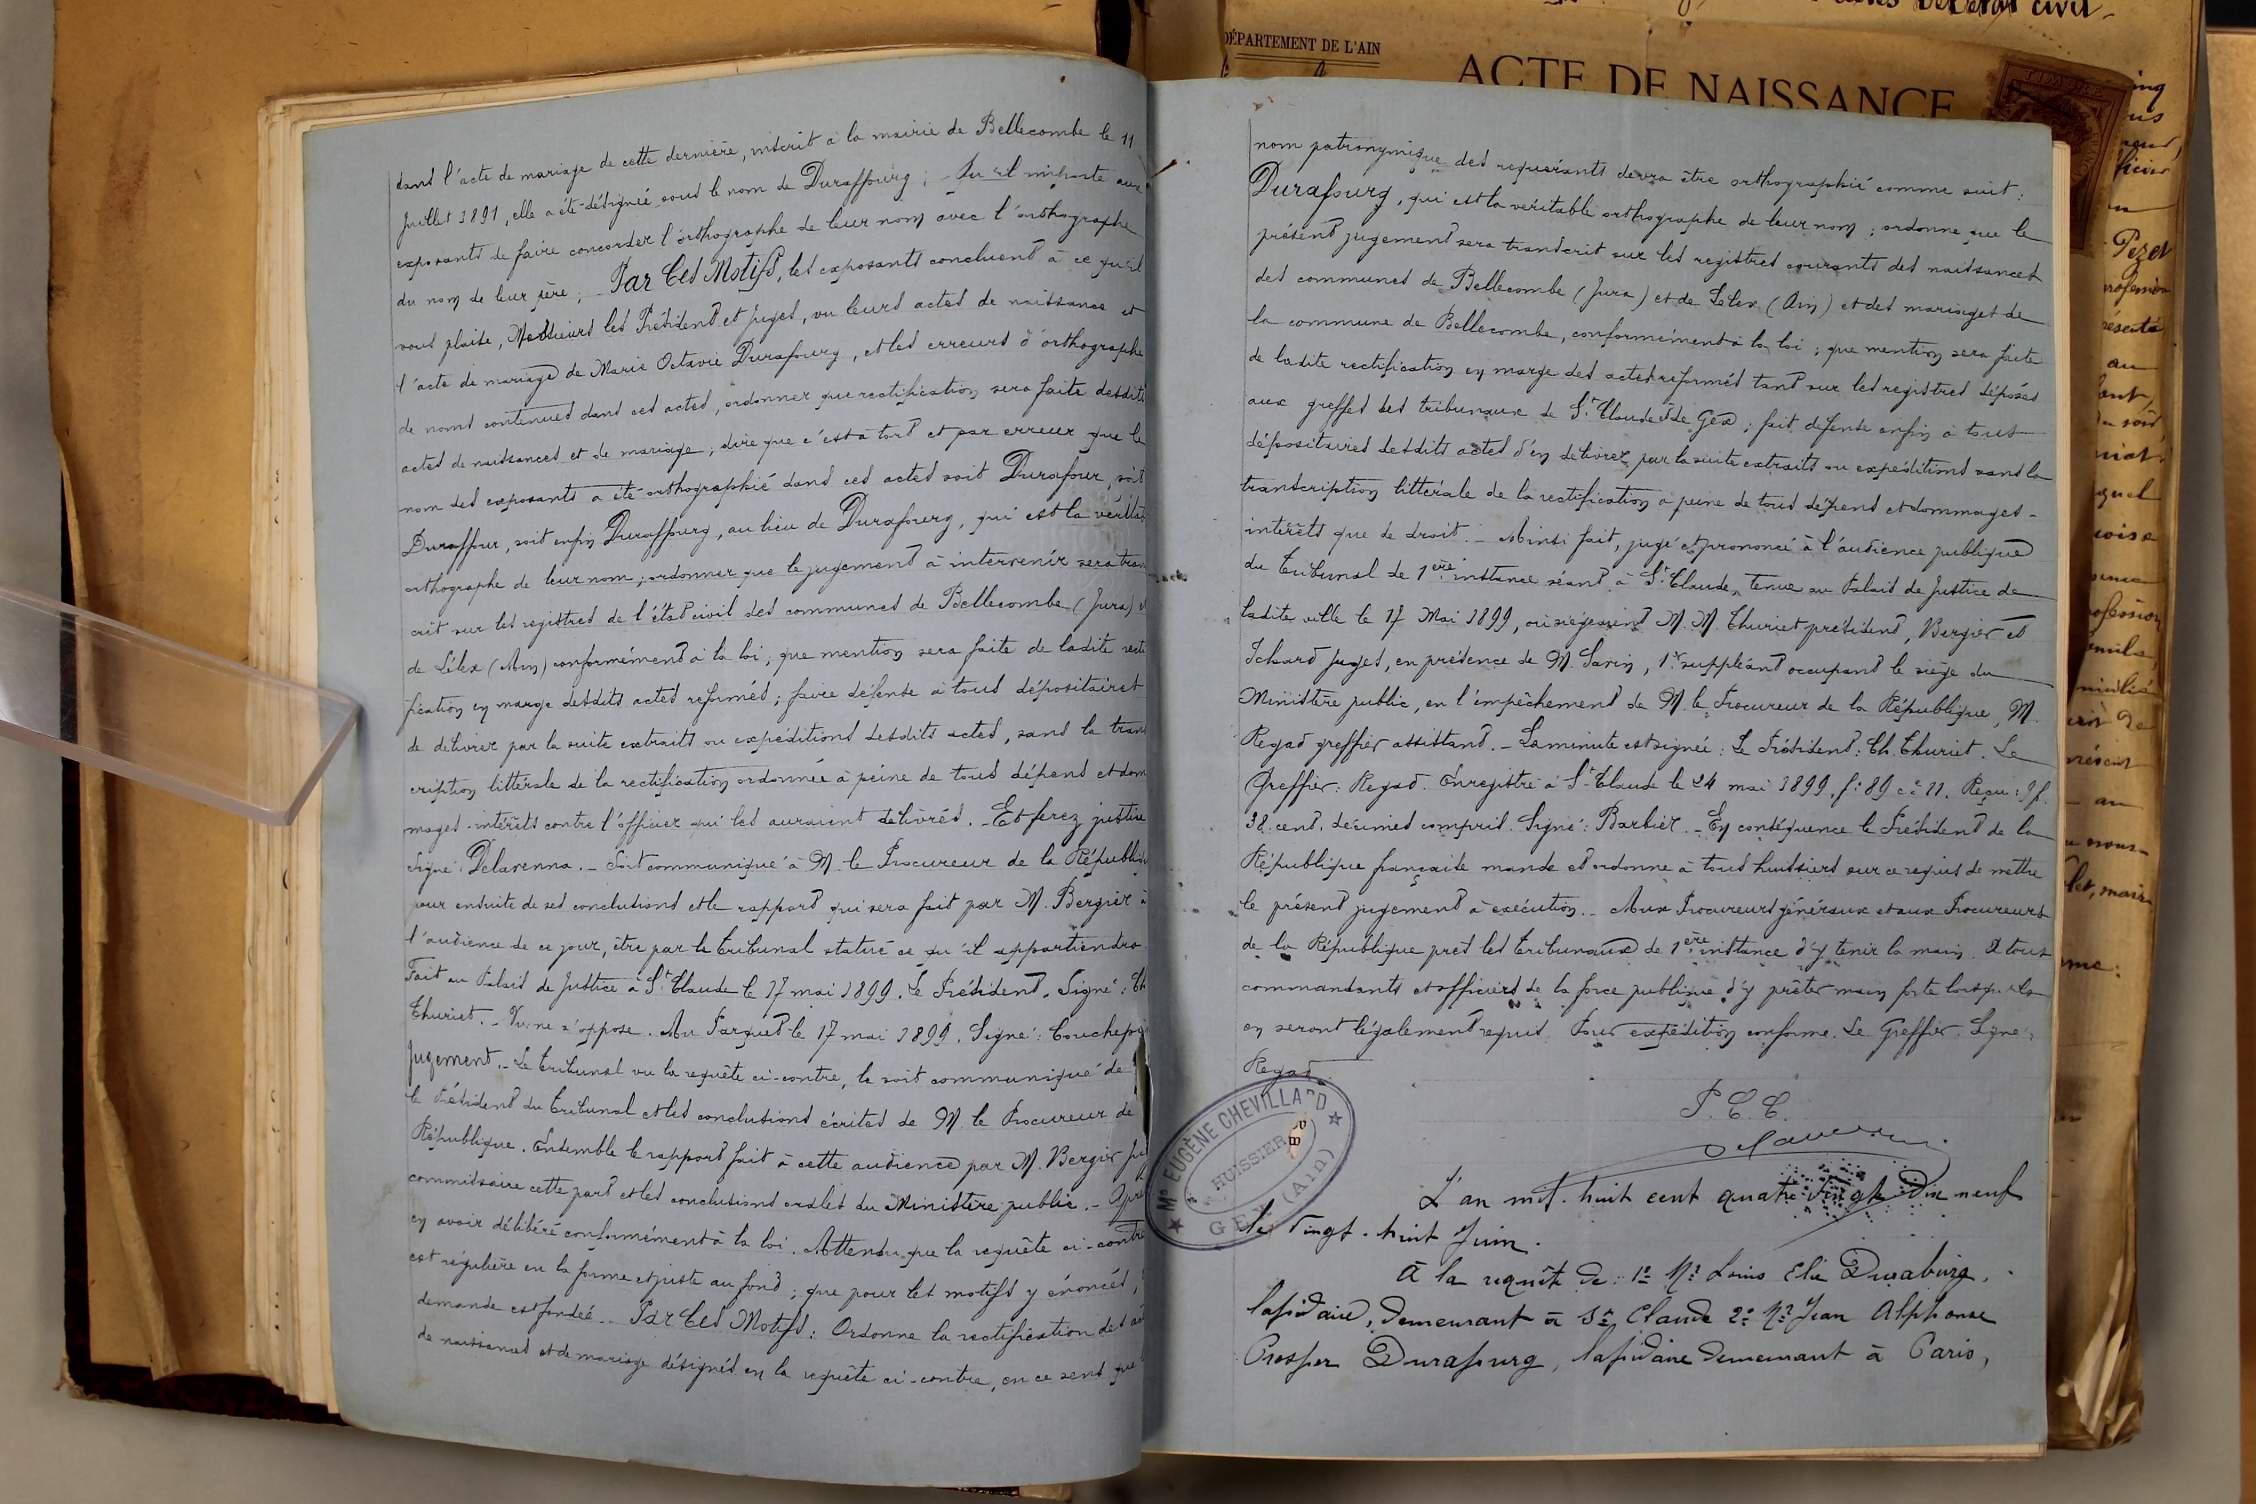 dans l'acte de mariage de cette dernière, inscrit à la mairie de Bellecombe le 11
Juillet 1891, elle a été désignée sous le nom de Duraffourg ; - Qu'il importe aux
exposants de faire concorder l'orthographe de leur nom avec l'orthographe
du nom de leur père ; - Par Ces Motifs, les exposants concluent à ce qu'il
vous plaise, Messieurs les Président et juges, vu leurs actes de naissance et
l'acte de mariage de Marie Octavie Durafourg, et les erreurs d'orthographe
de noms contenues dans ces actes, ordonner que rectification sera faite desdits
actes de naissances et de mariage ; dire que c'est à tort et par erreur que le
nom des exposants a été orthographié dans ces actes soit Durafour, soit
Duraffour, soit enfin Duraffourg, au lieu de Durafourg, qui est la vérita
orthographe de leur nom ; ordonner que le jugement à intervenir sera trans
crit sur les registres de l'état civil des communes de Bellecombe (Jura) et
de Lélex (Ain) conformément à la loi, que mention sera faite de ladite recti
fication en marge desdits actes reformés ; faire défense à tous dépositaires
de délivrer par la suite extraits ou expéditions desdits actes, sans la trans
cription littérale de la rectification ordonnée à peine de tous dépens et dom
mages-intérêts contre l'officier qui les auraient délivrés. - Et ferez justice
Signé : Delavenna. - Soit communiqué à M. le Procureur de la République
pour ensuite de ses conclusions et le rapport qui sera fait par M. Bergier à
l'audience de ce jour, être par le Tribunal statué ce qu'il appartiendra
Fait au Palais de Justice à St Claude le 17 mai 1899. Le Président. Signé : Ch
Thuriet. - Vu : ne s'oppose. Au Parquet le 17 mai 1899. Signé :
Jugement. - Le Tribunal vu la requête ci-contre, le soit communiqué de
le Président du Tribunal et les conclusions écrites de M. le Procureur de
République. Ensemble le rapport fait à cette audience par M. Bergier ju
commissaire cette part et les conclusions orales du Ministère public. - Après
en avoir délibéré conformément à la loi. Attendu que la requête ci-contre
est régulière en la forme et juste au fond ; que pour les motifs y énoncés,
demande est fondée. - Par Ces Motifs : Ordonne la rectification des act
de naissances et de mariage désignés en la requête ci-contre, en ce sens que
DÉPARTEMENT DE L'AIN
ACTE DE NAISSANCE
nom patronymique des requérants devra être orthographié comme suit :
Durafourg, qui est la véritable orthographe de leur nom ; ordonne que le
présent jugement sera transcrit sur les registres courants des naissances
des communes de Bellecombe (Jura) et de Lélex (Ain) et des mariages de
la commune de Bellecombe, conformément à la loi ; que mention sera faite
de ladite rectification en marge des actes reformés tant sur les registres déposés
aux greffes des tribunaux de St Claude & de Gex ; fait défense enfin à tous
dépositaires desdits actes d'en délivrer par la suite extraits ou expéditions sans la
transcription littérale de la rectification à peine de tous dépens et dommages-
intérêts que de droit. - Ainsi fait, jugé et prononcé à l'audience publique
du Tribunal de 1ère instance séant à St Claude, tenue au Palais de Justice de
ladite ville le 17 Mai 1899, où siégeaient M.M. Thuriet président, Bergier et
juges, en présence de M. 1er suppléant occupant le siège du
Ministère public, en l'empêchement de M. le Procureur de la République, M.
Regad greffier assistant. - La minute est signée : Le Président : Ch. Thuriet. Le
Greffier : Regad. Enregistré à St Claude le 24 mai 1899, f: 89 c: 11. Reçu : 9f.
38 cent. décimes compris. Signé : Barbier. - En conséquence le Président de la
République française mande et ordonne à tous huissiers sur ce requis de mettre
le présent jugement à exécution. - Aux Procureurs généraux et aux Procureurs
de la République près les Tribunaux de 1ère instance d'y tenir la main. A tous
commandants et officiers de la force publique d'y prêter main forte lorsqu'ils
en seront légalement requis. Pour expédition conforme. Le Greffier. Signé :
Regad
P. C. C.
Me EUGÈNE CHEVILLARD
HUISSIER
GEX (Ain)
L'an mil huit cent quatre vingt dix neuf
le vingt-huit Juin.
A la requête de : 1° Mr Louis Elie Durafourg,
lapidaire, demeurant à St Claude 2° Mr Jean Alphonse
Prosper Durafourg, lapidaire demeurant à Paris,